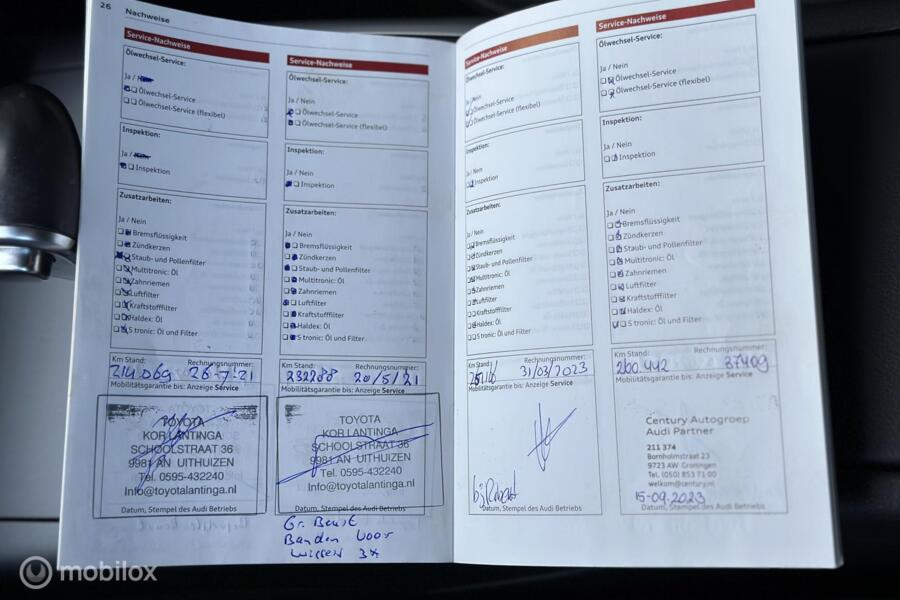 26 Nachweise
Service-Nachweise
Ölwechsel-Service:
Ja /
Ölwechsel-Service
Ölwechsel-Service (flexibel)
Inspektion:
Ja /
Inspektion
Zusatzarbeiten:
Ja / Nein
Bremsflüssigkeit
Zündkerzen
Staub- und Pollenfilter
Multitronic: Öl
Zahnriemen
Luftfilter
Kraftstofffilter
Haldex: Öl
S tronic: Öl und Filter
Km Stand: Rechnungsnummer:
214069 26-7-21
Mobilitätsgarantie bis: Anzeige Service
TOYOTA
KOR LANTINGA
SCHOOLSTRAAT 36
9981 AN UITHUIZEN
Tel. 0595-432240
Info@toyotalantinga.nl
Datum, Stempel des Audi Betriebs
Service-Nachweise
Ölwechsel-Service:
Ja / Nein
Ölwechsel-Service
Ölwechsel-Service (flexibel)
Inspektion:
Ja / Nein
Inspektion
Zusatzarbeiten:
Ja / Nein
Bremsflüssigkeit
Zündkerzen
Staub- und Pollenfilter
Multitronic: Öl
Zahnriemen
Luftfilter
Kraftstofffilter
Haldex: Öl
S tronic: Öl und Filter
Km Stand: Rechnungsnummer:
232288 20/5/21
Mobilitätsgarantie bis: Anzeige Service
TOYOTA
KOR LANTINGA
SCHOOLSTRAAT 36
9981 AN UITHUIZEN
Tel. 0595-432240
Info@toyotalantinga.nl
Datum, Stempel des Audi Betriebs
Gr. Beurt
Banden voor
wissen 3x
Service-Nachweise
Ölwechsel-Service:
Ja / Nein
Ölwechsel-Service
Ölwechsel-Service (flexibel)
Inspektion:
Ja / Nein
Inspektion
Zusatzarbeiten:
Ja / Nein
Bremsflüssigkeit
Zündkerzen
Staub- und Pollenfilter
Multitronic: Öl
Zahnriemen
Luftfilter
Kraftstofffilter
Haldex: Öl
S tronic: Öl und Filter
Km Stand: Rechnungsnummer:
31/03/2023
Mobilitätsgarantie bis: Anzeige Service
Datum, Stempel des Audi Betriebs
Service-Nachweise
Ölwechsel-Service:
Ja / Nein
Ölwechsel-Service
Ölwechsel-Service (flexibel)
Inspektion:
Ja / Nein
Inspektion
Zusatzarbeiten:
Ja / Nein
Bremsflüssigkeit
Zündkerzen
Staub- und Pollenfilter
Multitronic: Öl
Zahnriemen
Luftfilter
Kraftstofffilter
Haldex: Öl
S tronic: Öl und Filter
Km Stand: Rechnungsnummer:
260.442 37409
Mobilitätsgarantie bis: Anzeige Service
Century Autogroep
Audi Partner
211 374
Bornholmstraat 23
9723 AW Groningen
Tel. (050) 853 71 00
welkom@century.nl
15-09-2023
Datum, Stempel des Audi Betriebs
mobilox